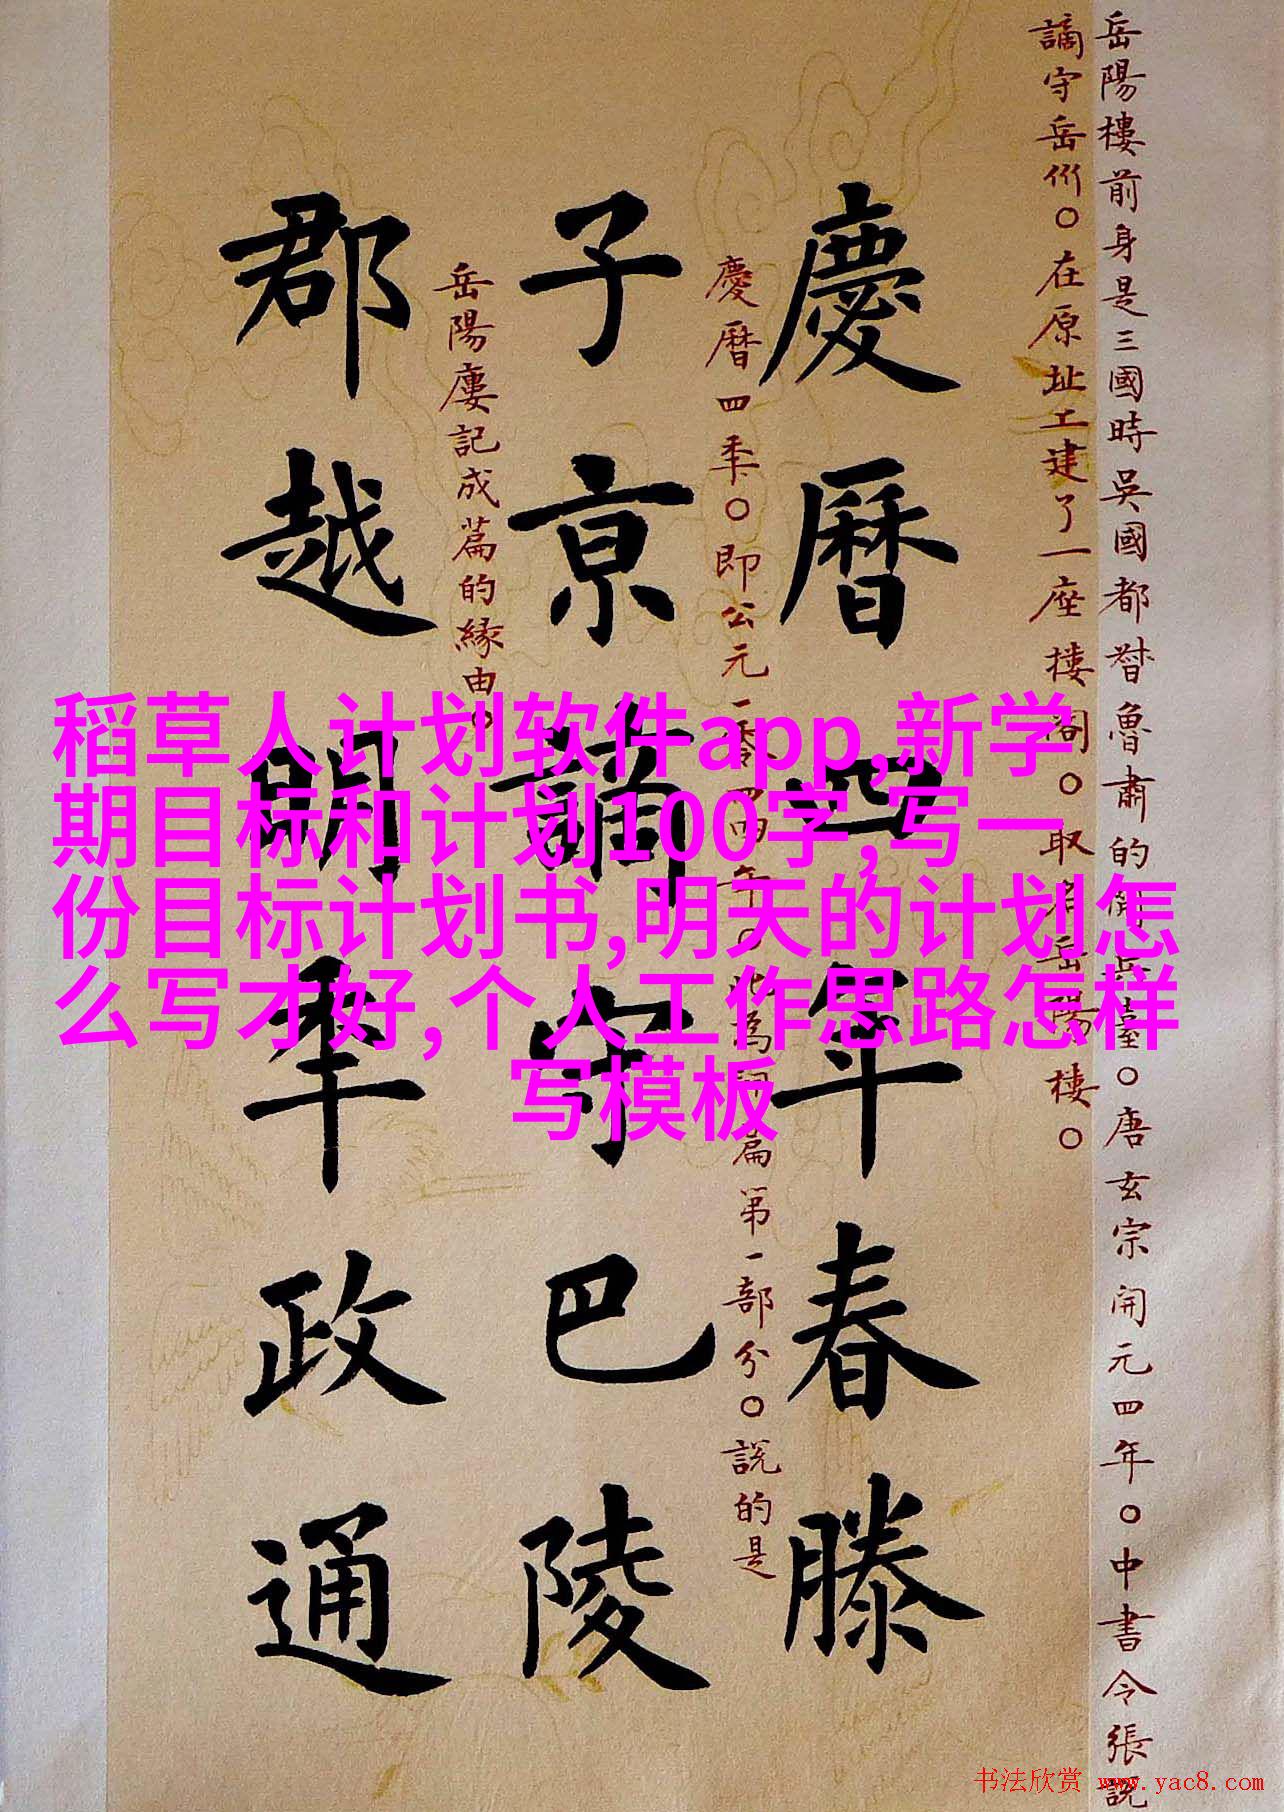 岳陽樓前身是三國時吳國都督魯肅的閱兵臺○唐玄宗開元四年○中書令張說
謫守岳州○在原址工建了一座樓閣○取名岳陽樓○
慶曆四年春滕
慶曆四季○即公元一零四四年○此為詞篇第一部分○說的是
子京謫守巴陵
岳陽廔記成篇的緣由○
郡越明年政通
稻草人计划软件app,新学
期目标和计划100字,写一
份目标计划书,明天的计划怎
么写才好,个人工作思路怎样
写模板
书法欣赏 www.yac8.com